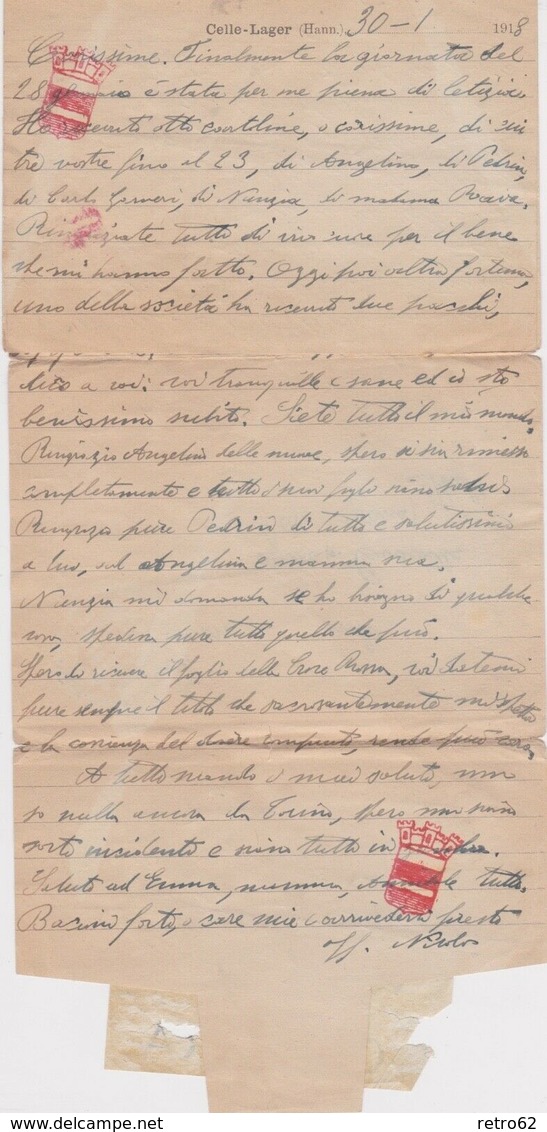 Celle-Lager (Hann.), 30-1 1918
Carissime. Finalmente la giornata del
28 gennaio è stata per me piena di letizia.
Ho ricevuto otto cartoline, o carissime, di cui
tre vostre fino al 23, di Angelino, di Pedrin,
di Carlo di Nunzia, di madama
Ringraziate tutti di vivo cuore per il bene
che mi hanno fatto. Oggi poi altra fortuna,
uno della società ha ricevuto due pacchi,
a voi: voi tranquille e sane ed io sto
benissimo subito. Siete tutto il mio mondo.
Ringrazio Angelino delle nuove, spero si sia rimesso
completamente e tutti i suoi figli siano
Ringrazio pure Pedrin di tutto e salutissimi
a lui, ad Angelina e mamma sua.
Nunzia mi domanda se ho bisogno di qualche
cosa, spedisca pure tutto quello che può.
Spero di ricevere il foglio della Croce Rossa, voi
pure sempre il titolo che sacrosantemente mi spetta
e la coscienza del dovere compiuto, rende più
A tutti mando i miei saluti, non
so nulla ancora da Torino, spero non siano
sorti incidenti e siano tutti in
Saluti ad Emma, mamma, tutti.
Bacioni forti, o care mie e arrivederci presto
Nicolo
retro62